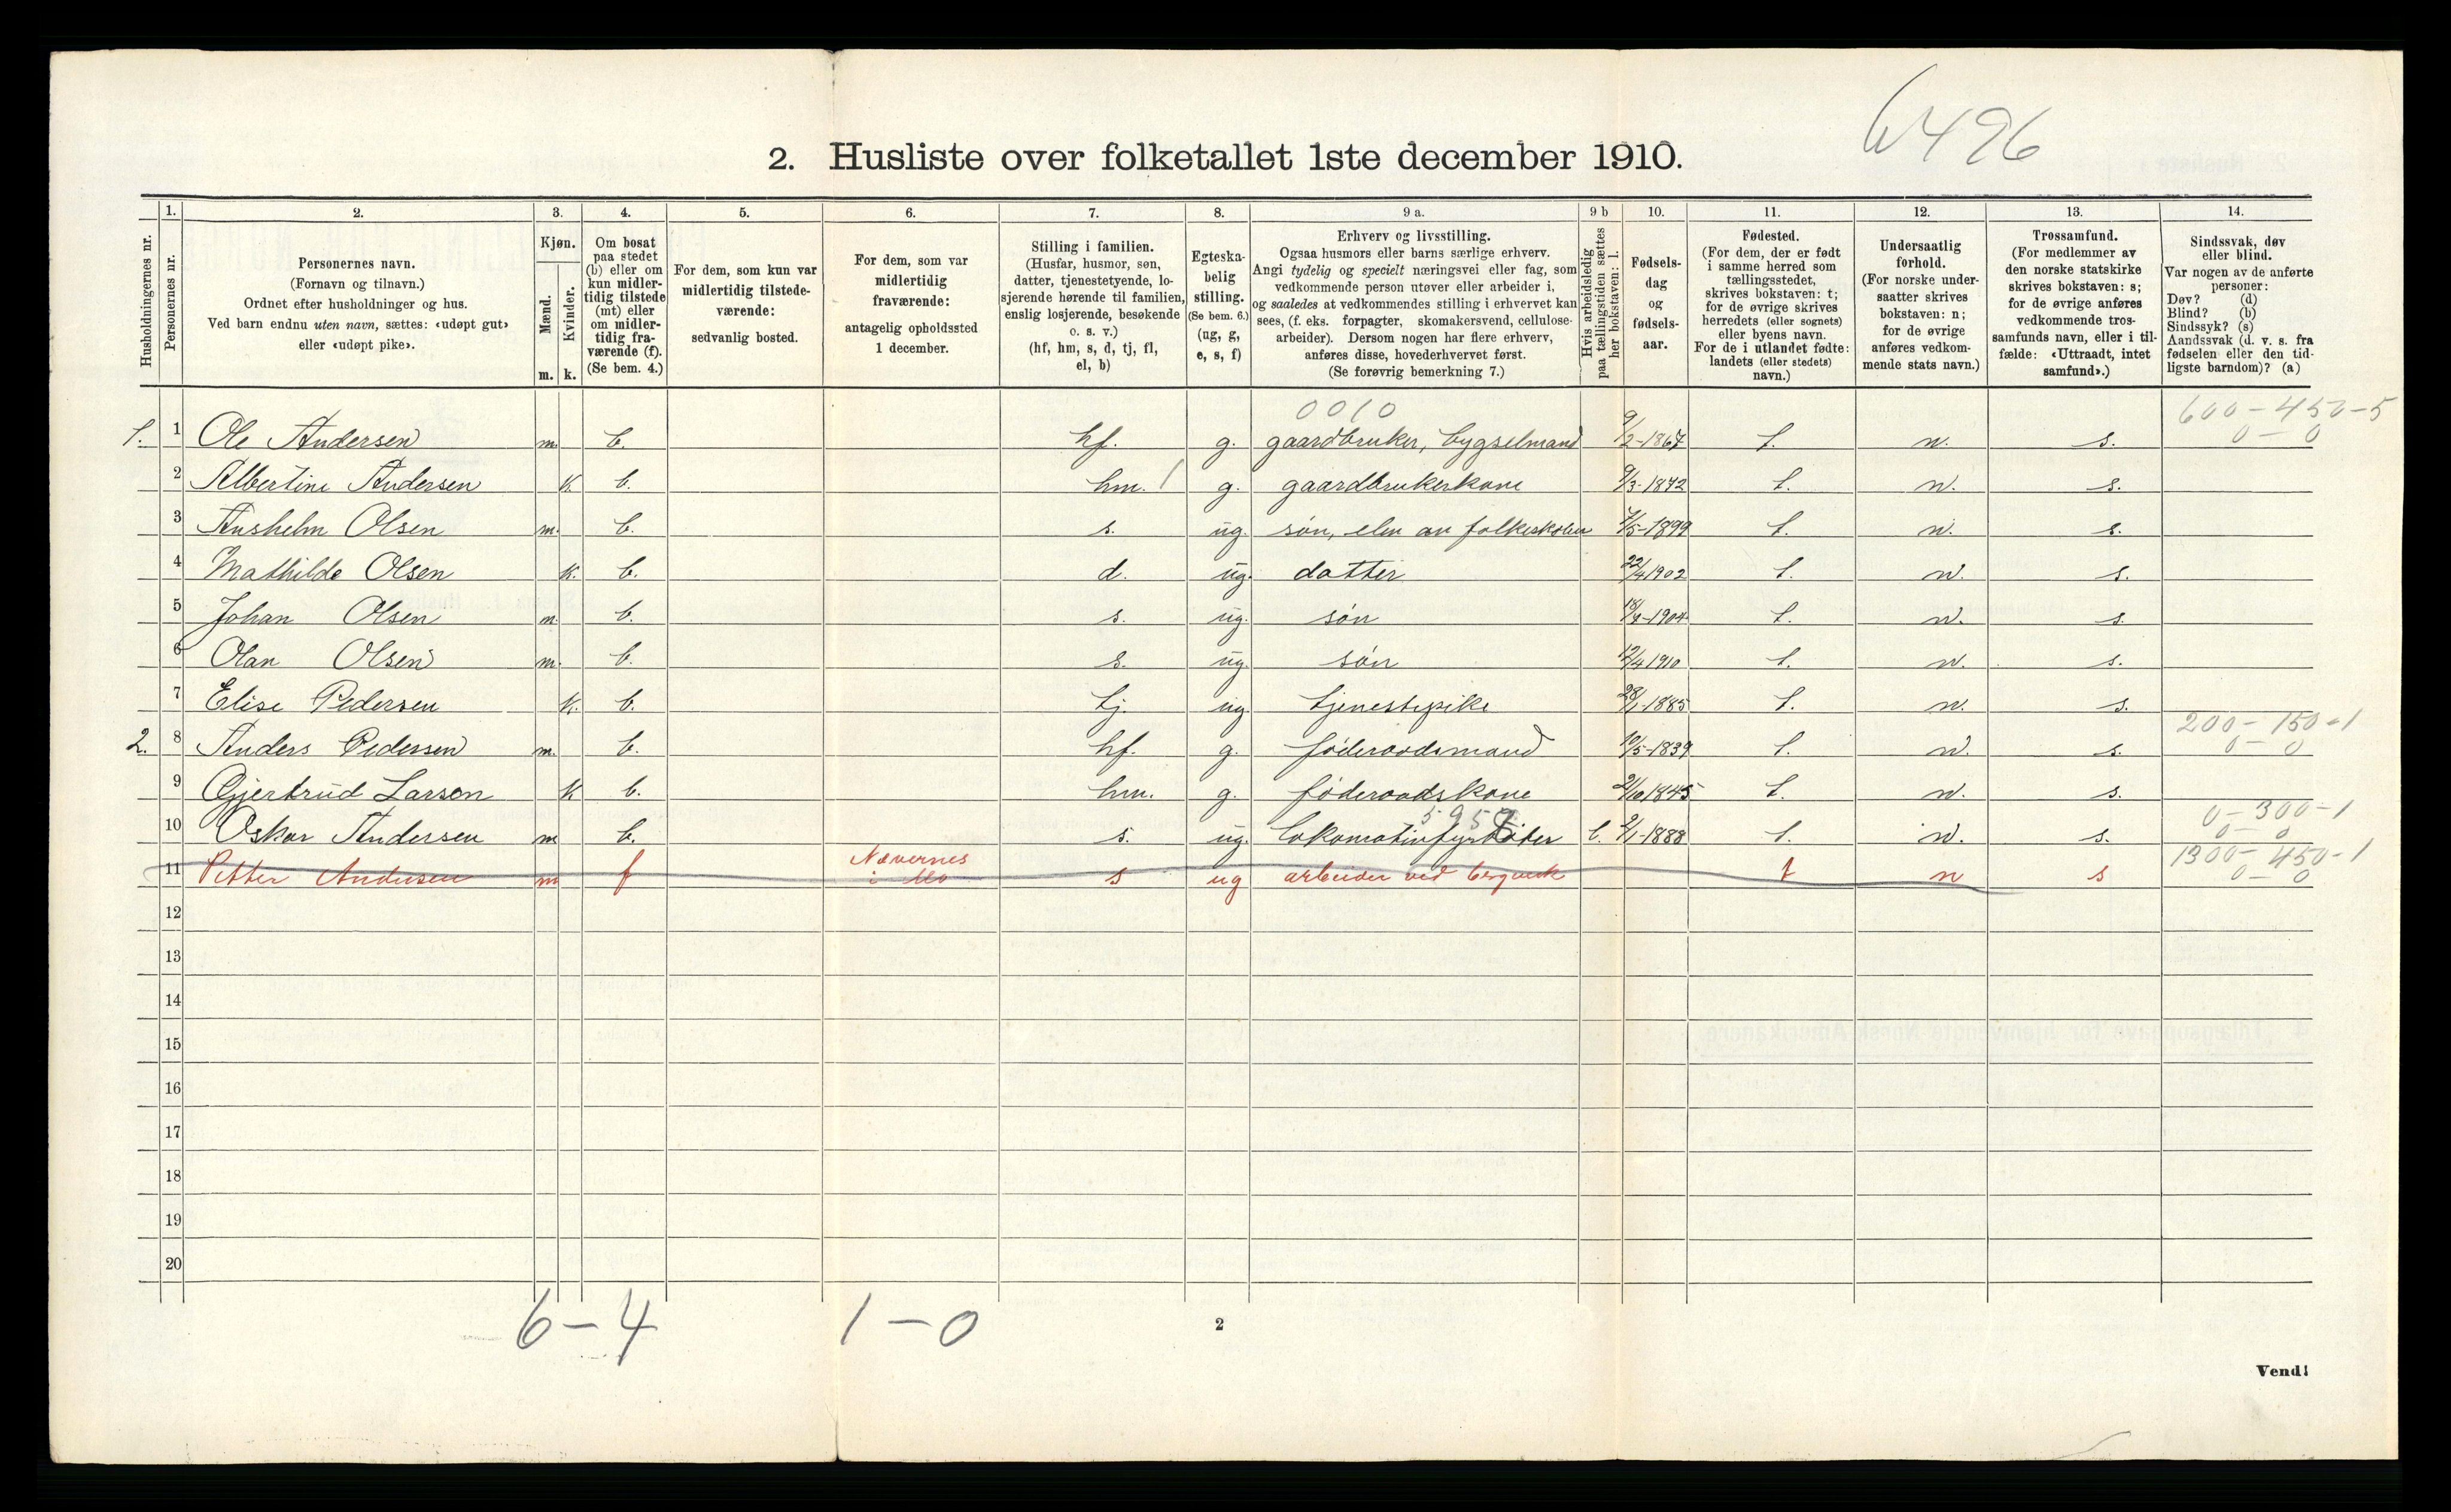 W496
2. Husliste over folketallet 1ste december 1910.
Husholdningernes nr.
1.
Personernes nr.
2.
Personernes navn.
(Fornavn og tilnavn.)
Ordnet efter husholdninger og hus.
Ved barn endnu uten navn, sættes: «udøpt gut»
eller «udøpt pike».
3.
Kjøn.
Mænd.
Kvinder.
m. k.
4.
Om bosat
paa stedet
(b) eller om
kun midler-
tidig tilstede
(mt) eller
om midler-
tidig fra-
værende (f).
(Se bem. 4.)
5.
For dem, som kun var
midlertidig tilstede-
værende:
sedvanlig bosted.
6.
For dem, som var
midlertidig
fraværende:
antagelig opholdssted
1 december.
7.
Stilling i familien.
(Husfar, husmor, søn,
datter, tjenestetyende, lo-
sjerende hørende til familien,
enslig losjerende, besøkende
o. s. v.)
(hf, hm, s, d, tj, fl,
el, b)
8.
Egteska-
belig
stilling.
(Se bem. 6.)
(ug, g,
e, s, f)
9 a.
Erhverv og livsstilling.
Ogsaa husmors eller barns særlige erhverv.
Angi tydelig og specielt næringsvei eller fag, som
vedkommende person utøver eller arbeider i,
og saaledes at vedkommendes stilling i erhvervet kan
sees, (f. eks. forpagter, skomakersvend, cellulose-
arbeider). Dersom nogen har flere erhverv,
anføres disse, hovederhvervet først.
(Se forøvrig bemerkning 7.)
9 b
Hvis arbeidsledig
paa tællingstiden sættes
her bokstaven: l.
10.
Fødsels-
dag
og
fødsels-
aar.
11.
Fødested.
(For dem, der er født
i samme herred som
tællingsstedet,
skrives bokstaven: t;
for de øvrige skrives
herredets (eller sognets)
eller byens navn.
For de i utlandet fødte:
landets (eller stedets)
navn.)
12.
Undersaatlig
forhold.
(For norske under-
saatter skrives
bokstaven: n;
for de øvrige
anføres vedkom-
mende stats navn.)
13.
Trossamfund.
(For medlemmer av
den norske statskirke
skrives bokstaven: s;
for de øvrige anføres
vedkommende tros-
samfunds navn, eller i til-
fælde: «Uttraadt, intet
samfund».)
14.
Sindssvak, døv
eller blind.
Var nogen av de anførte
personer:
Døv? (d)
Blind? (b)
Sindssyk? (s)
Aandssvak (d. v. s. fra
fødselen eller den tid-
ligste barndom)? (a)
0010 600-450-5
1. 1 Ole Andersen m. b. hf. g. gaardbruker, bygselmand 9/2-1867 t. n. s. 0-0
2 Albertine Andersen k. b. hm. 1 g. gaardbrukerkone 9/3-1872 t. n. s.
3 Anshelm Olsen m. b. s. ug. søn, elev av folkeskolen 7/5-1899 t. n. s.
4 Mathilde Olsen k. b. d. ug. datter 22/4 1902 t. n. s.
5 Johan Olsen m. b. s. ug. søn 1904 t. n. s.
6 Olav Olsen m. b. s. ug. søn 12/4 1910 t. n. s.
7 Elise Pedersen k. b. tj. ug. tjenestepike 28/1-1885 t. n. s.
200-150-1
2. 8 Anders Pedersen m. b. hf. g. føderaadsmand 10/5-1839 t. n. s. 0-0
9 Gjertrud Larsen k b. hm. g. føderaadskone 21/10 1845 t. n. s.
0-300-1
10 Oskar Andersen m b. s. ug. lokomotivfyrbøter l. 2/1-1888 t. n. s. 0-0
Nævernes 1300-450-1
11 Petter Andersen m f i Mo s ug arbeider ved bergverk t n s 0-0
12
13
14
15
16
17
18
19
20
6-4 1-0
2
Vend!